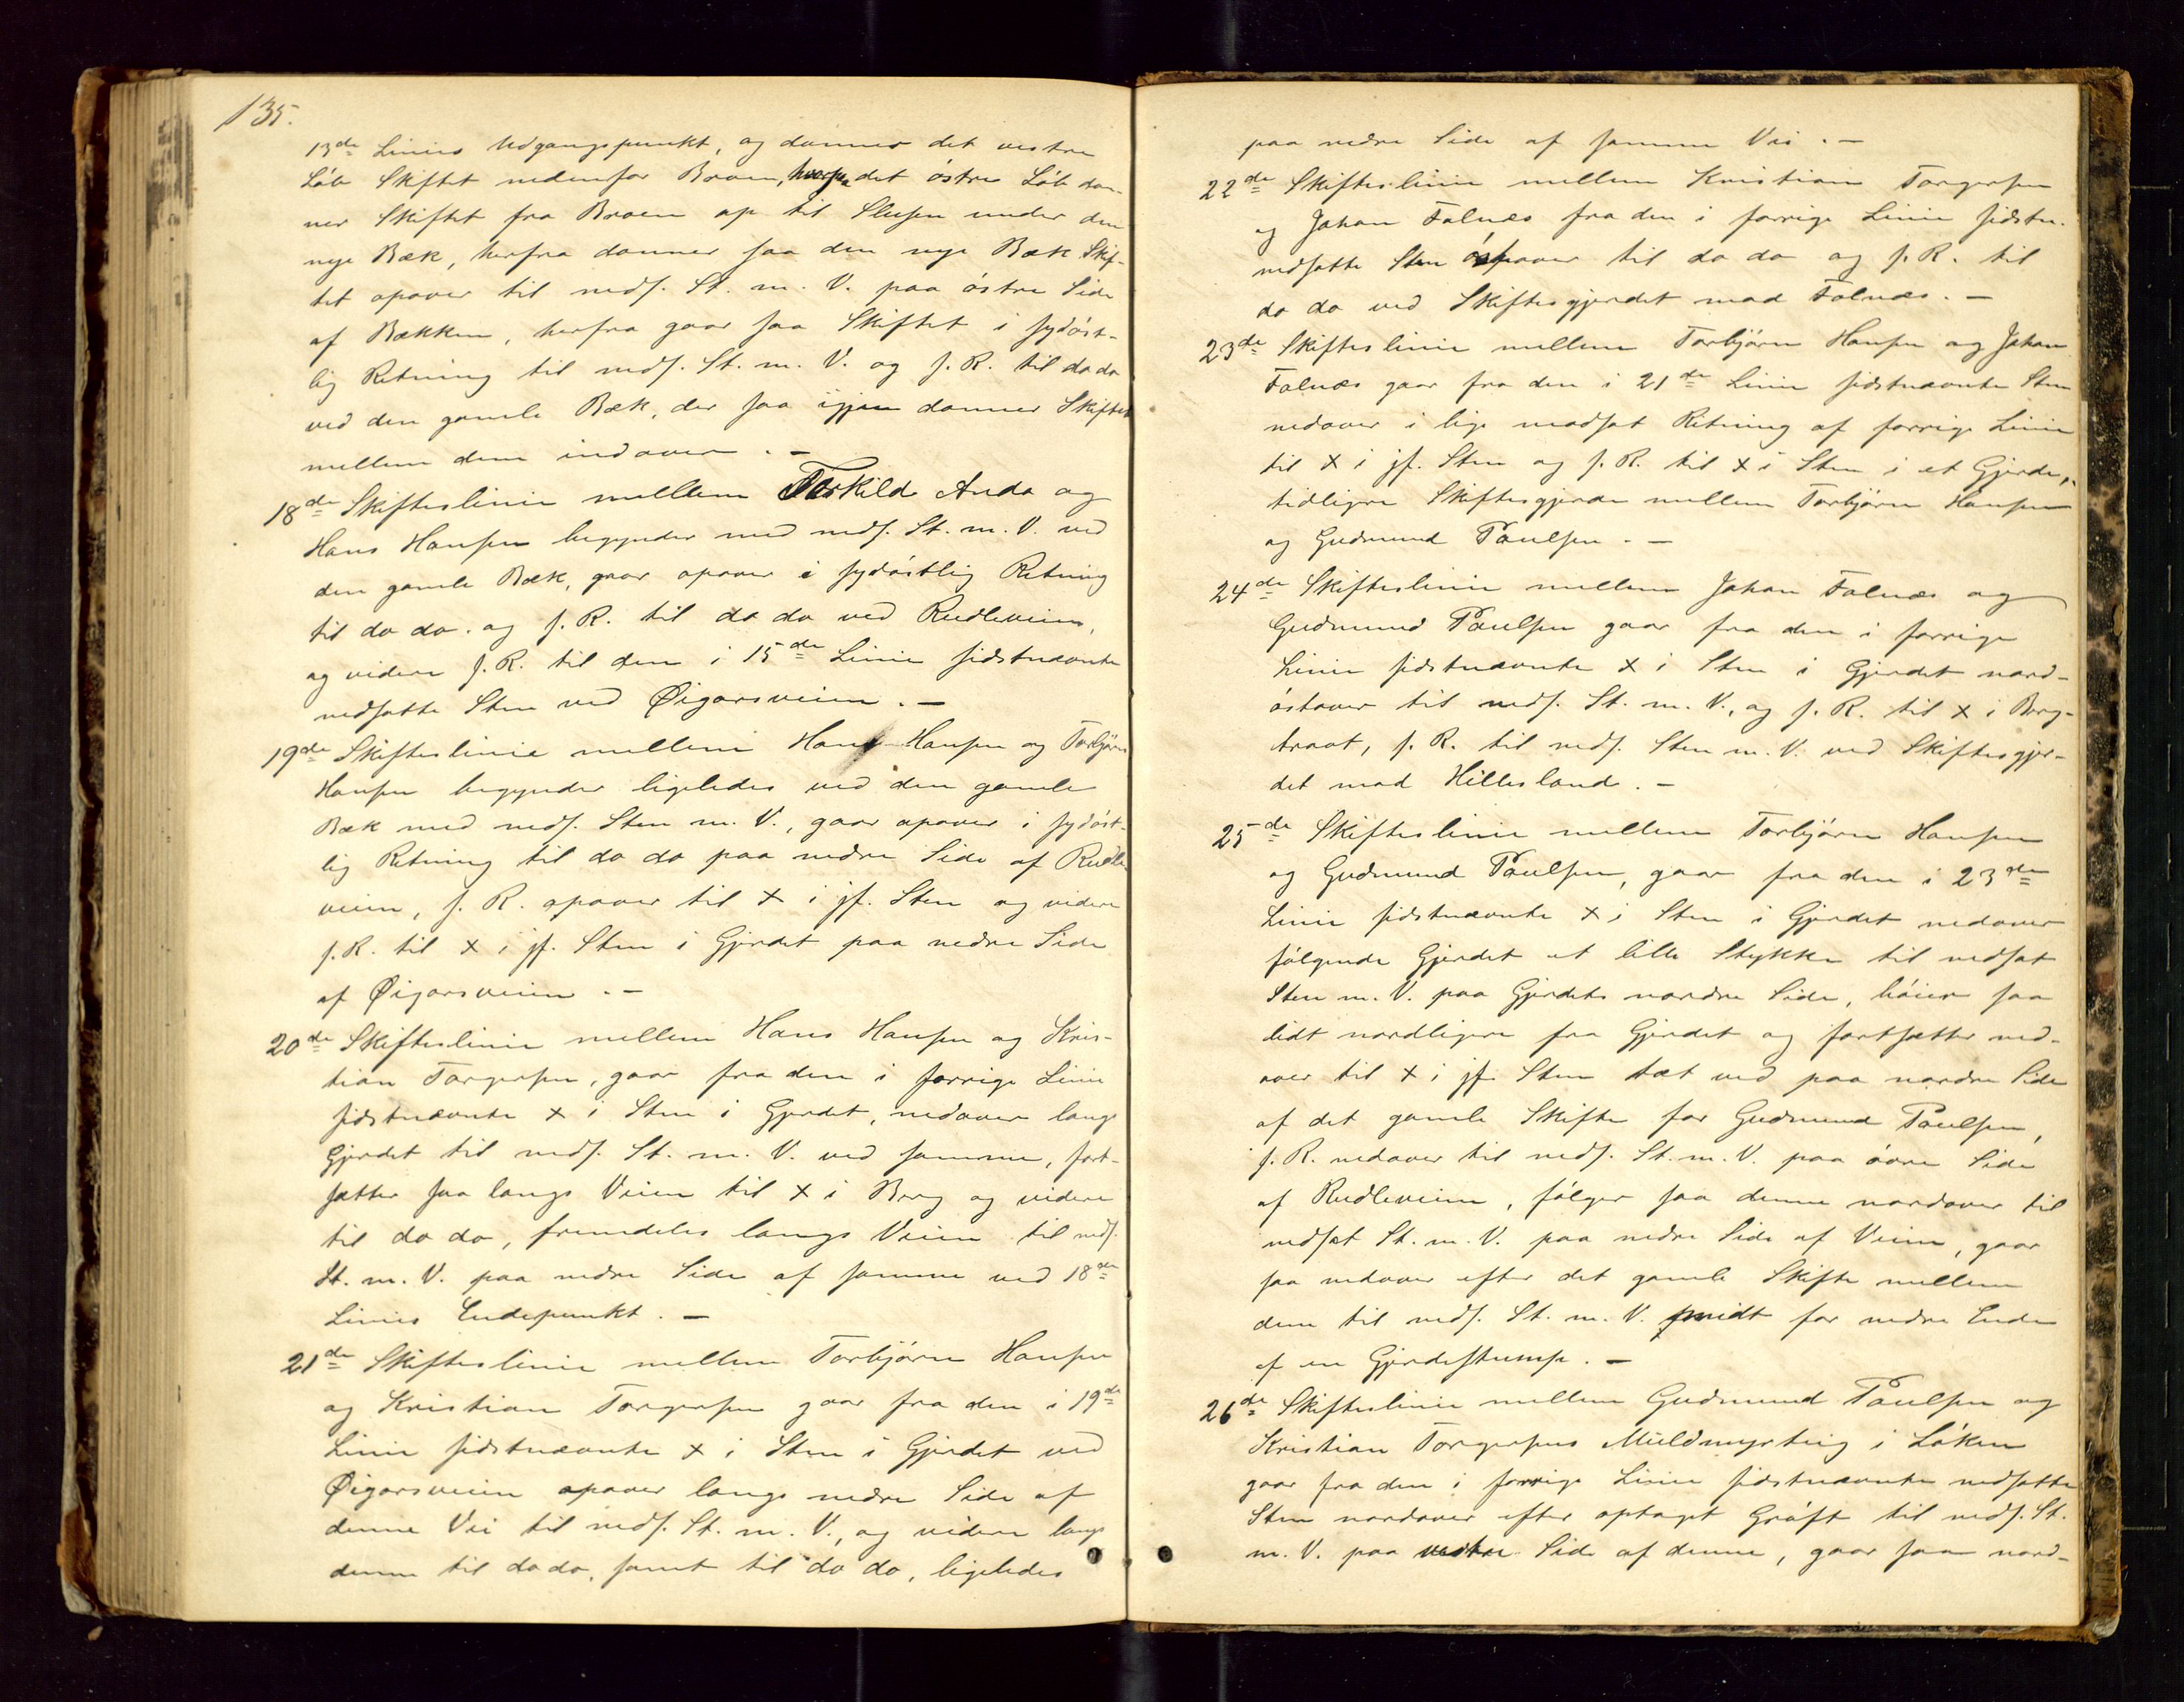 135.
13de Linies Udgangspunkt, og danner det vestre
Løb Skiftet nedenfor Broen, det østre Løb dan-
ner Skiftet fra Broen op til Slusen under den
nye Bæk, herfra danner saa den nye Bæk Skif-
tet opover til neds. St. m. V. paa østre Side
af Bækken, herfra gaar saa Skiftet i sydøst-
lig Retning til neds. St. m. V. og s. R. til do do
ved den gamle Bæk, der saa igjen danner Skiftet
mellem dem indover. –
18de Skifteslinie mellem Terkild Anda og
Hans Hansen begynder med neds. St. m. V. ved
den gamle Bæk, gaar opover i sydøstlig Retning
til do do. og s. R. til do do ved Rudleveien,
og videre s. R. til den i 15de Linie sidstnævnte
nedsatte Sten ved Øigarsveien. –
19de Skifteslinie mellem Hans Hansen og Torbjørn
Hansen begynder ligeledes ved den gamle
Bæk med neds. Sten m. V., gaar opover i sydøst-
lig Retning til do do paa nedre Side af Rudle-
veien, s. R. opover til x i jf. Sten og videre
s. R. til x i jf. Sten i Gjerdet paa nedre Side
af Øigarsveien. –
20de Skifteslinie mellem Hans Hansen og Kris-
tian Torgersen, gaar fra den i forrige Linie
sidstnævnte x i Sten i Gjerdet, nedover langs
Gjerdet til neds. St. m. V. ved samme, fort-
sætter saa langs Veien til x i Berg og videre
til do do, fremdeles langs Veien til neds.
St. m. V. paa nedre Side af samme ved 18de
Linies Endepunkt. –
21de Skifteslinie mellem Torbjørn Hansen
og Kristian Torgersen gaar fra den i 19de
Linie sidstnævnte x i Sten i Gjerdet ved
Øigarsveien opover langs nedre Side af
denne Vei til neds. St. m. V., og videre langs
denne til do do, samt til do do, ligeledes
paa nedre Side af samme Vei. –
22de Skifteslinie mellem Kristian Torgersen
og Johan Falnæs fra den i forrige Linie sidstn.
nedsatte Sten østover til do do og s. R. til
do do ved Skiftesgjerdet mod Falnæs. –
23de Skifteslinie mellem Torbjørn Hansen og Johan
Falnæs gaar fra den i 21de Linie sidstnævnte Sten
nedover i lige modsat Retning af forrige Linie
til x i jf. Sten og s. R. til x i Sten i et Gjerde,
tidligere Skiftesgjerde mellem Torbjørn Hansen
og Gudmund Paulsen. –
24de Skifteslinie mellem Johan Falnæs og
Gudmund Paulsen gaar fra den i forrige
Linie sidstnævnte x i Sten i Gjerdet nord-
østover til neds. St. m. V., og s. R. til x i Berg-
braat, s. R. til neds. Sten m. V. ved Skiftesgjer-
det mod Hillesland. –
25de Skifteslinie mellem Torbjørn Hansen
og Gudmund Paulsen, gaar fra den i 23de
Linie sidstnævnte x i Sten i Gjerdet nedover
følgende Gjerdet et lille Stykke til nedsat
Sten m. V. paa Gjerdets nordre Side, bøier saa
lidt nordligere fra Gjerdet og fortsætter ned-
over til x i jf. Sten tæt ved paa nordre Side
af det gamle Skifte for Gudmund Paulsen,
s. R. nedover til neds. St. m. V. paa øvre Side
af Rudleveien, følger saa denne nordover til
nedsat St. m. V. paa nedre Side af Veien, gaar
saa nedover efter det gamle Skifte mellem
dem til neds. St. m. V. midt for nedre Ende
af en Gjerdestump. –
26de Skifteslinie mellem Gudmund Paulsen og
Kristian Torgersens Muldmyrteig i Løken
gaar fra den i forrige Linie sidstnævnte nedsatte
Sten nordover efter optaget Grøft til neds. St.
m. V. paa vestre Side af denne, gaar saa nord-